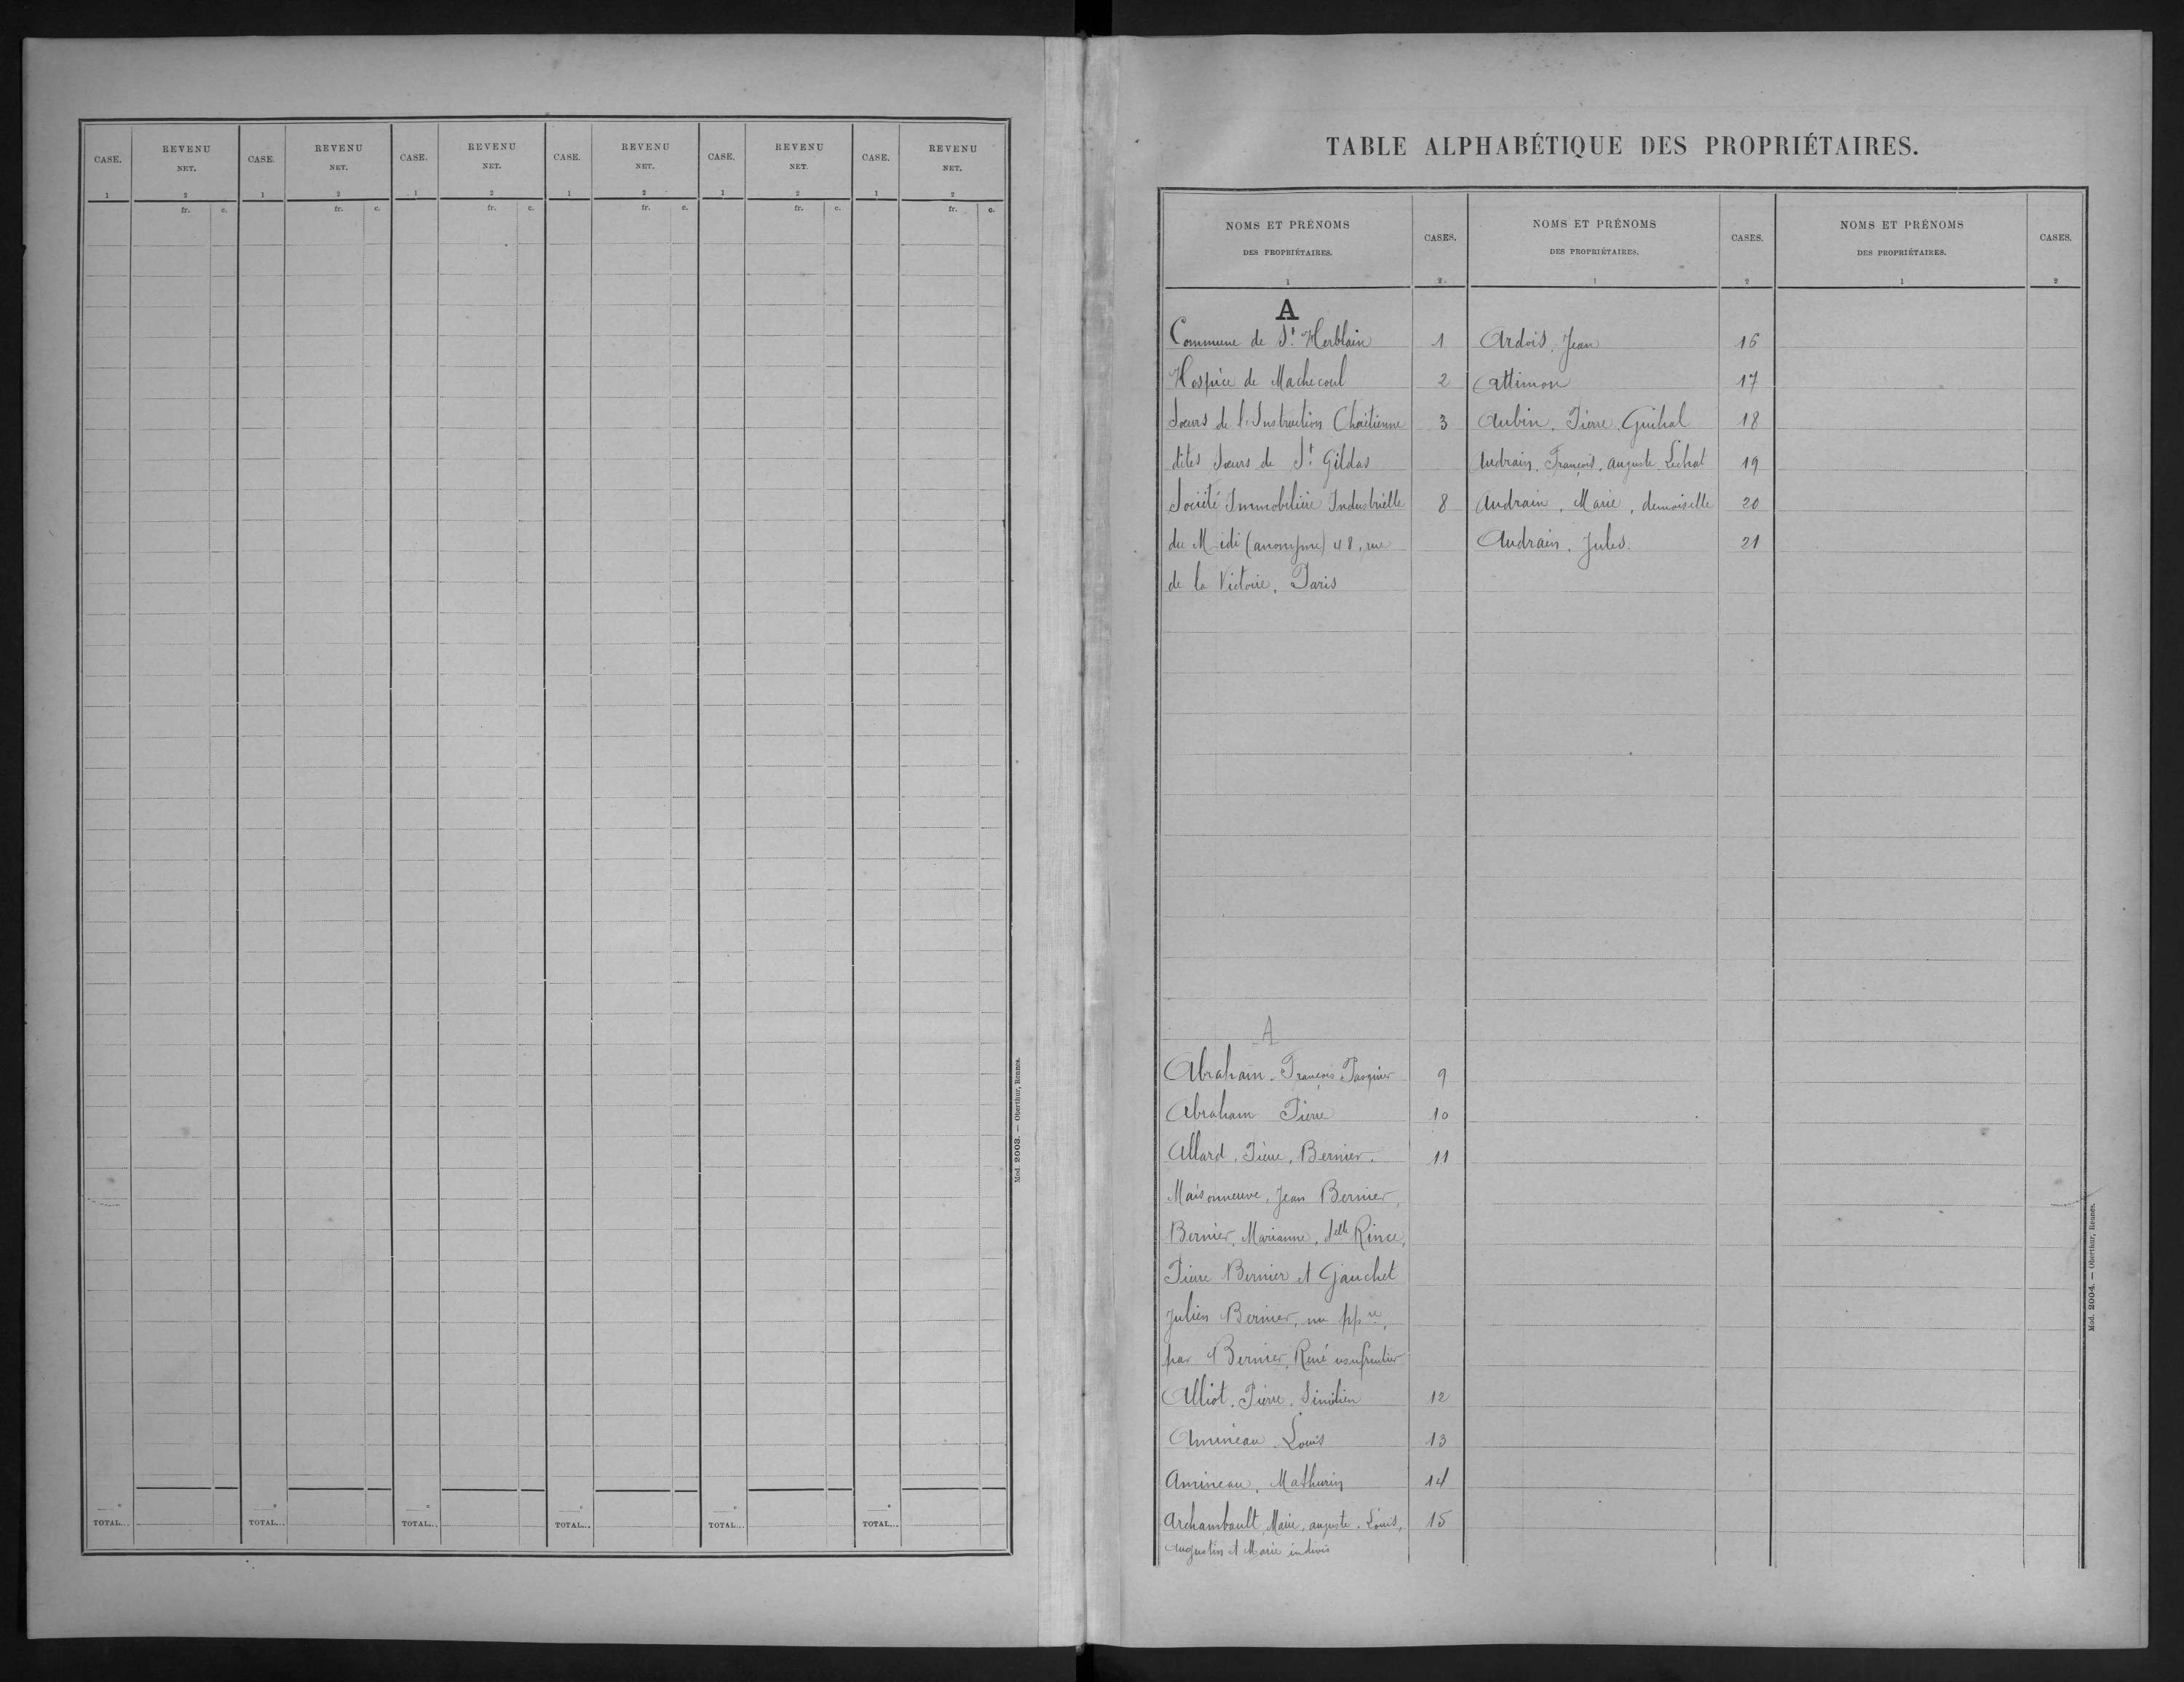 CASE. REVENU NET. CASE. REVENU NET. CASE. REVENU NET. CASE. REVENU NET. CASE. REVENU NET. CASE. REVENU NET.
1 2 1 2 1 2 1 2 1 2 1 2
fr. c. fr. c. fr. c. fr. c. fr. c. fr. c.
TOTAL... TOTAL... TOTAL... TOTAL... TOTAL... TOTAL...
Mod. 2003. — Oberthur, Rennes.
TABLE ALPHABÉTIQUE DES PROPRIÉTAIRES.
NOMS ET PRÉNOMS DES PROPRIÉTAIRES. CASES. NOMS ET PRÉNOMS DES PROPRIÉTAIRES. CASES. NOMS ET PRÉNOMS DES PROPRIÉTAIRES. CASES.
1 2 1 2 1 2
A
Commune de St. Herblain 1
Hospice de Machecoul 2
Sœurs de l'Instruction Chrétienne 3
dites Sœurs de St. Gildas
Société Immobilière Industrielle 8
du Midi (anonyme) 48, rue
de la Victoire, Paris
A
Abraham. François Pasquier 9
Abraham Pierre 10
Allard, Pierre, Bernier. 11
Maisonneuve, Jean Bernier,
Bernier, Marianne, delle Rince,
Pierre Bernier et Gauchet
Julien Bernier, nu ppre,
par Bernier, René usufruitier
Alliot, Pierre, Sinidien 12
Amineau. Louis 13
Amineau, Mathurin 14
Archambault, Marie, auguste, Louis, 15
Augustin et Marie indivis
Ardois, Jean 16
Attimon 17
Aubin, Pierre, Guihal 18
Audrain, François, Auguste Lechat 19
Audrain, Marie, demoiselle 20
Audrain, Jules. 21
Mod. 2004. — Oberthur, Rennes.